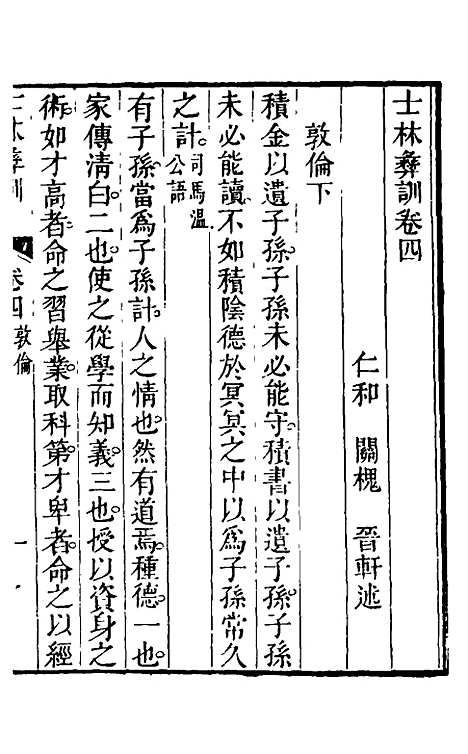 士林彝訓卷四
仁和　關槐　晉軒述
敦倫下
積金以遺子孫子孫未必能守積書以遺子孫子孫
未必能讀不如積陰德於冥冥之中以爲子孫常久
之計。司馬溫公語
有子孫當爲子孫計人之情也然有道焉種德一也。
家傳清白二也使之從學而知義三也授以資身之
術如才高者命之習舉業取科第才卑者命之以經
士林彝訓　卷四敦倫　一